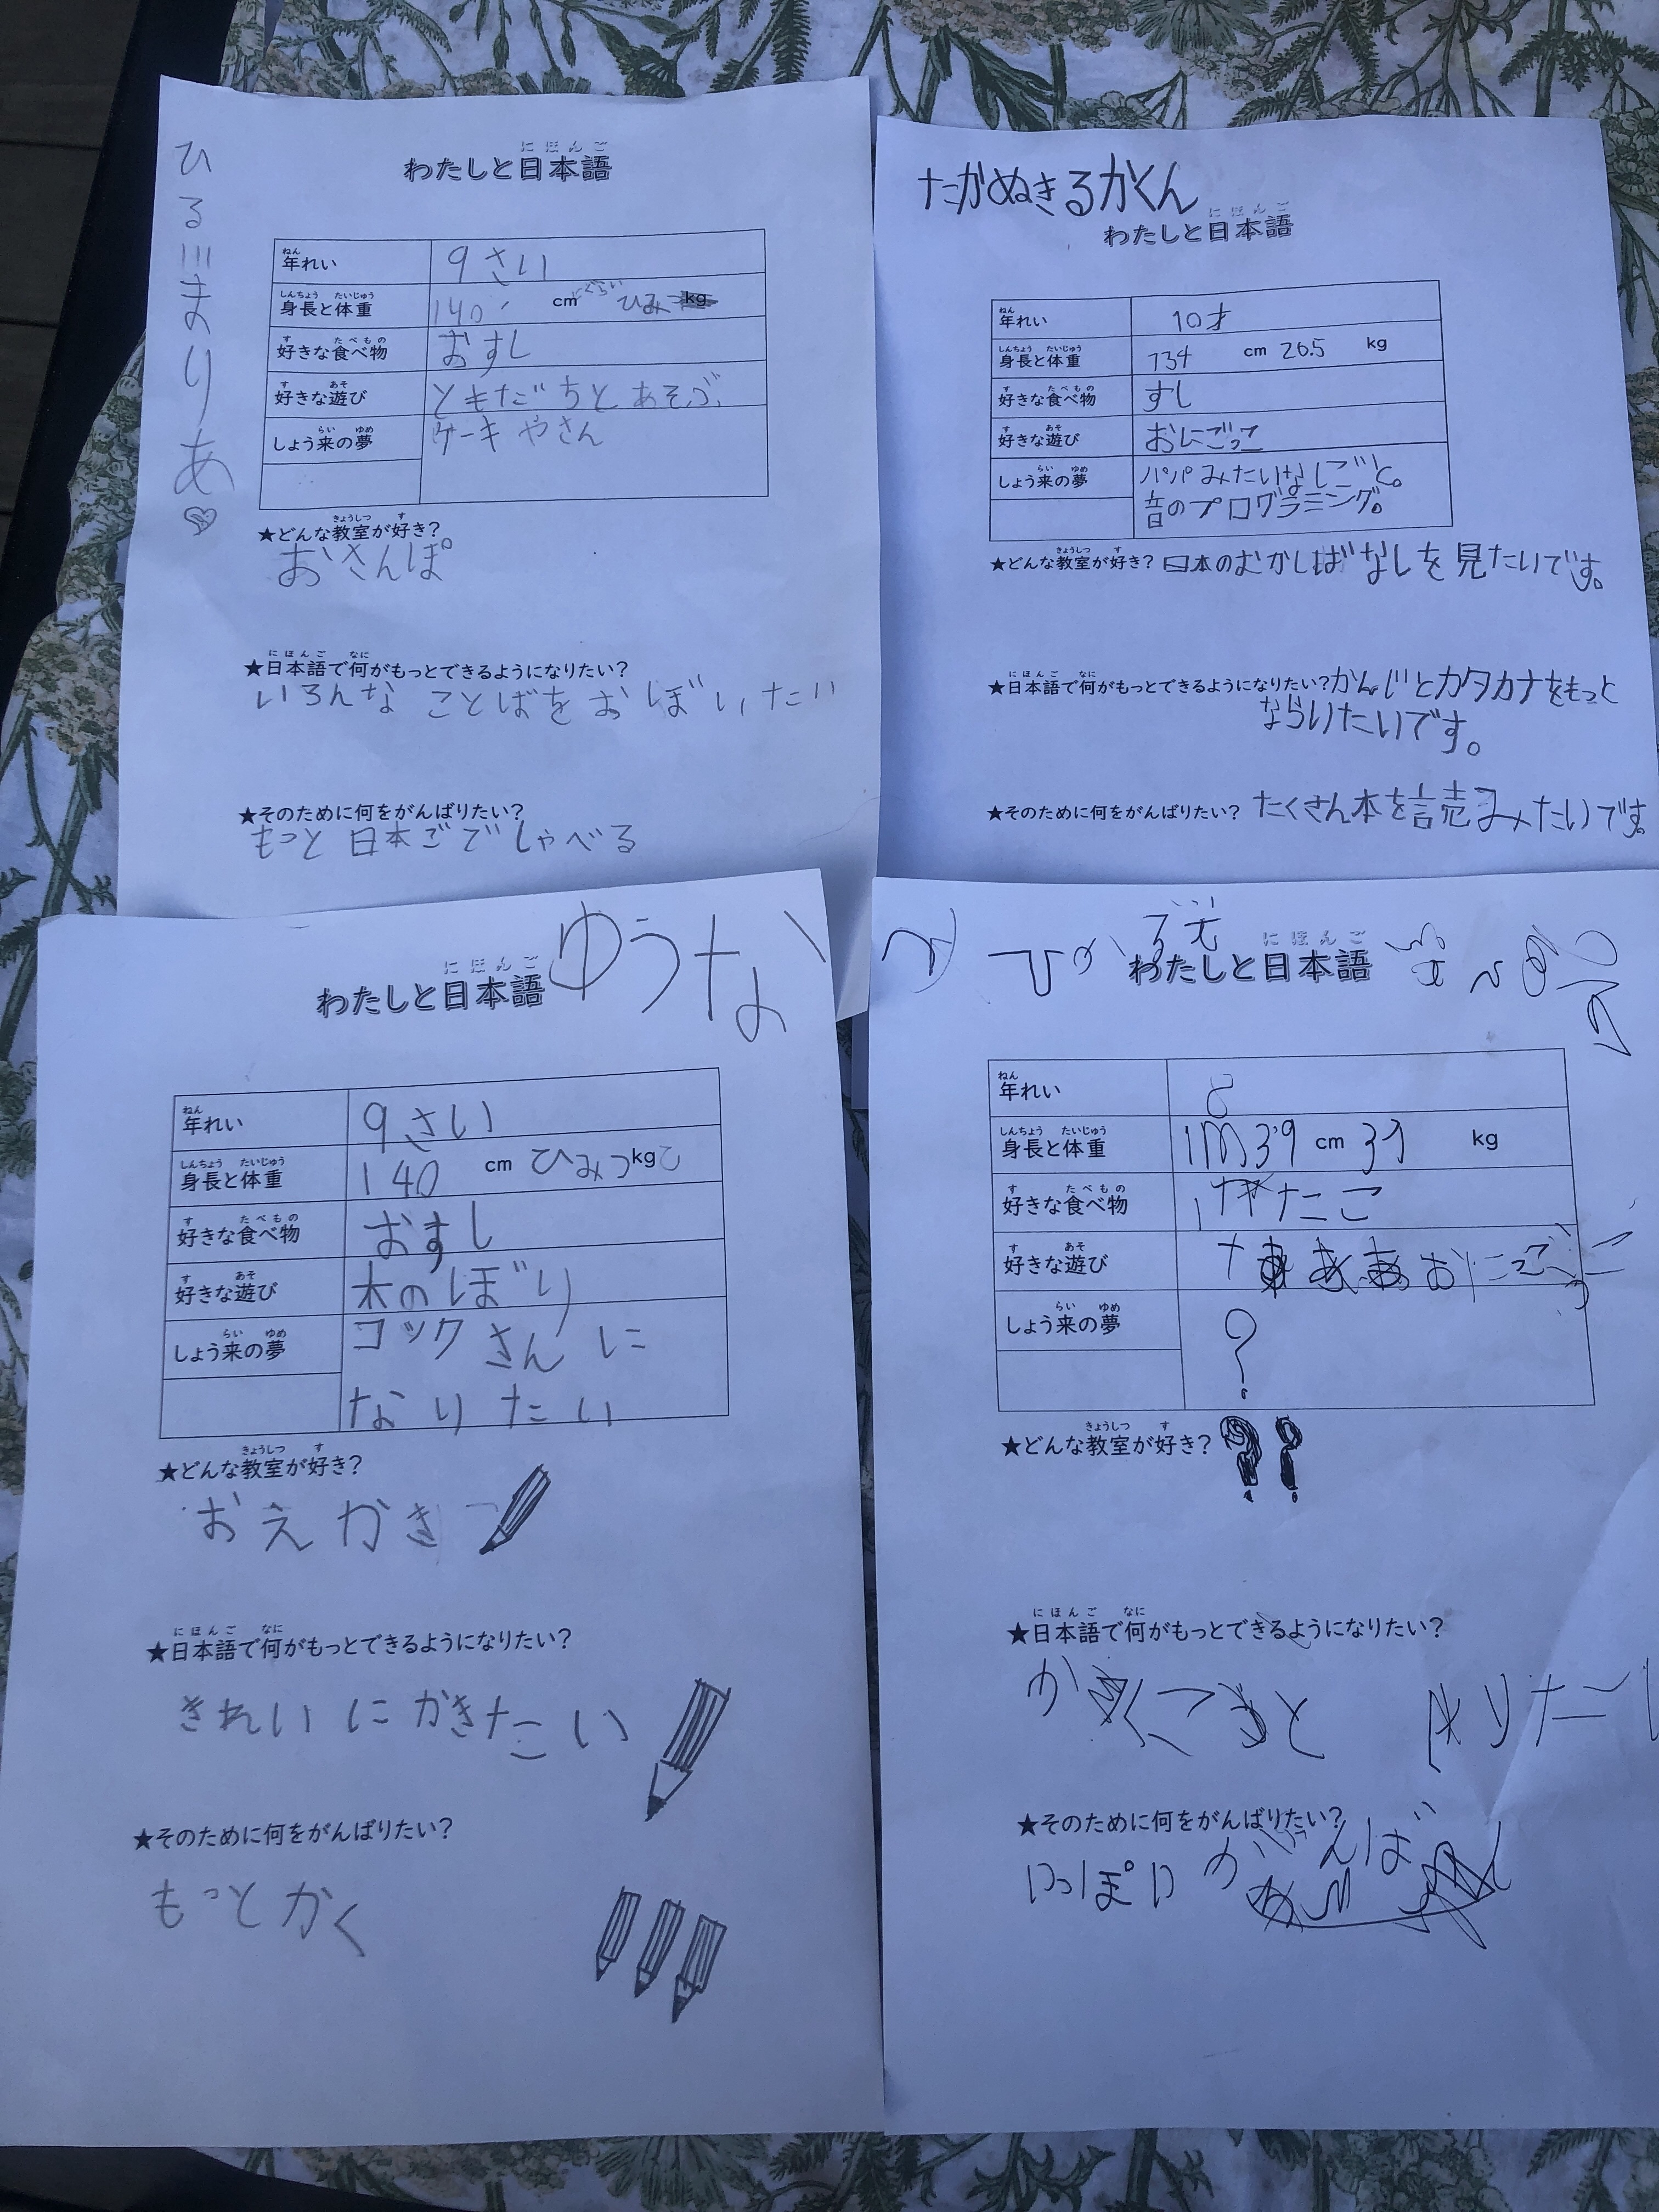 ひるままりあ
にほんご
わたしと日本語
ねん
年れい 9さい
しんちょう たいじゅう
身長と体重 140 cm ぐらい ひみつ kg
す たべもの
好きな食べ物 おすし
す あそ
好きな遊び ともだちとあそぶ
らい ゆめ
しょう来の夢 ケーキやさん
きょうしつ す
★どんな教室が好き?
おさんぽ
にほんご なに
★日本語で何がもっとできるようになりたい?
いろんな ことばをおぼいたい
★そのために何をがんばりたい?
もっと 日本ごでしゃべる
たかぬきるかくん
にほんご
わたしと日本語
ねん
年れい 10才
しんちょう たいじゅう
身長と体重 134 cm 26.5 kg
す たべもの
好きな食べ物 すし
す あそ
好きな遊び おにごっこ
らい ゆめ
しょう来の夢 パパみたいなしごと。
音のプログラミング。
きょうしつ す
★どんな教室が好き? 日本のむかしばなしを見たいです。
にほんご なに
★日本語で何がもっとできるようになりたい?かんじとカタカナをもっと
ならいたいです。
★そのために何をがんばりたい? たくさん本を読みたいです。
ゆうな
にほんご
わたしと日本語
ねん
年れい 9さい
しんちょう たいじゅう
身長と体重 140 cm ひみつ kg
す たべもの
好きな食べ物 おすし
す あそ
好きな遊び 木のぼり
らい ゆめ
しょう来の夢 コックさんに
なりたい
きょうしつ す
★どんな教室が好き?
おえかき
にほんご なに
★日本語で何がもっとできるようになりたい?
きれいにかきたい
★そのために何をがんばりたい?
もっとかく
にほんご
わたしと日本語
ねん
年れい
しんちょう たいじゅう
身長と体重 1m39 cm kg
す たべもの
好きな食べ物
す あそ
好きな遊び おにごっこ
らい ゆめ
しょう来の夢 ?
きょうしつ す
★どんな教室が好き? ??
にほんご なに
★日本語で何がもっとできるようになりたい?
★そのために何をがんばりたい?
いっぱい